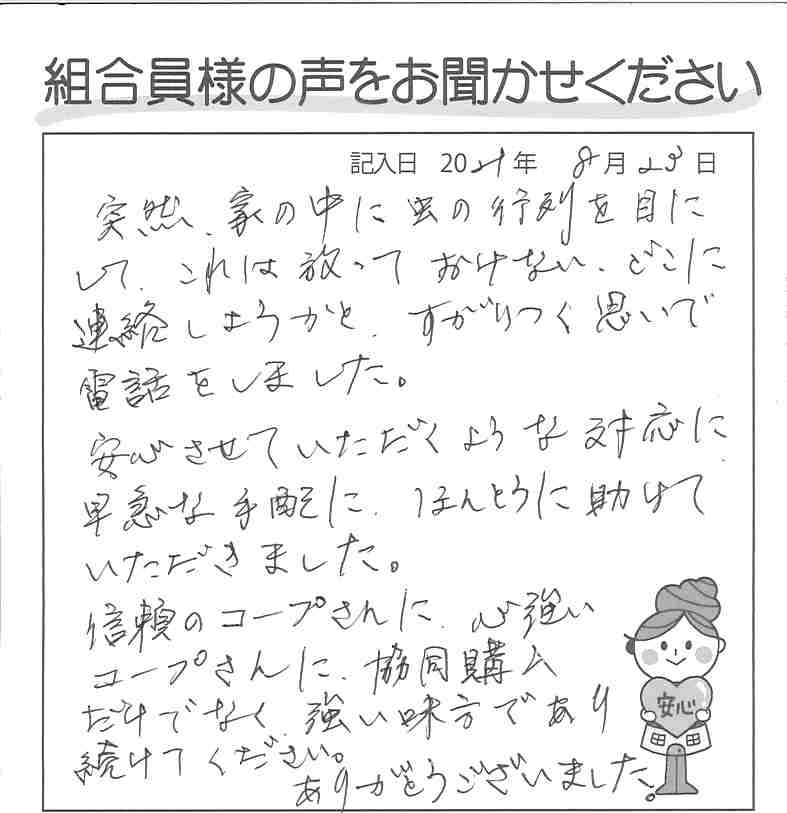 組合員様の声をお聞かせください
記入日 2021年 8月23日
突然、家の中に虫の行列を目に
して、これは放っておけない、どこに
連絡しようかと、すがりつく思いで
電話をしました。
安心させていただくような対応に
早急な手配に、ほんとうに助けて
いただきました。
信頼のコープさんに、心強い
コープさんに、協同購入
だけでなく、強い味方であり
続けてください。
ありがとうございました。
安心